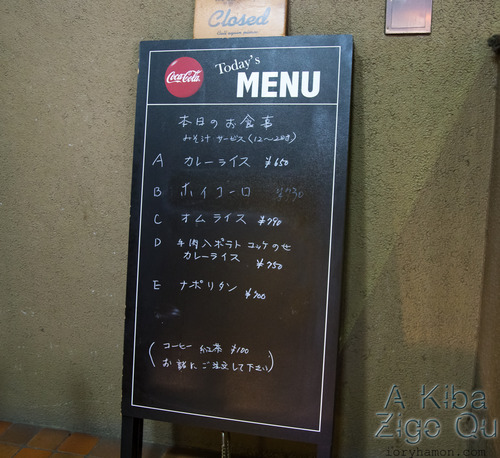 Closed
Coca-Cola
Today's
MENU
本日のお食事
みそ汁 サービス (12〜2時)
A カレーライス ¥650
B ホイコーロ ¥730
C オムライス ¥790
D 牛肉入ポテトコロッケのせ
カレーライス ¥750
E ナポリタン ¥700
(コーヒー 紅茶 ¥100
お詰にご注文して下さい)
A Kiba
Zigo Qu
foryhamon.com